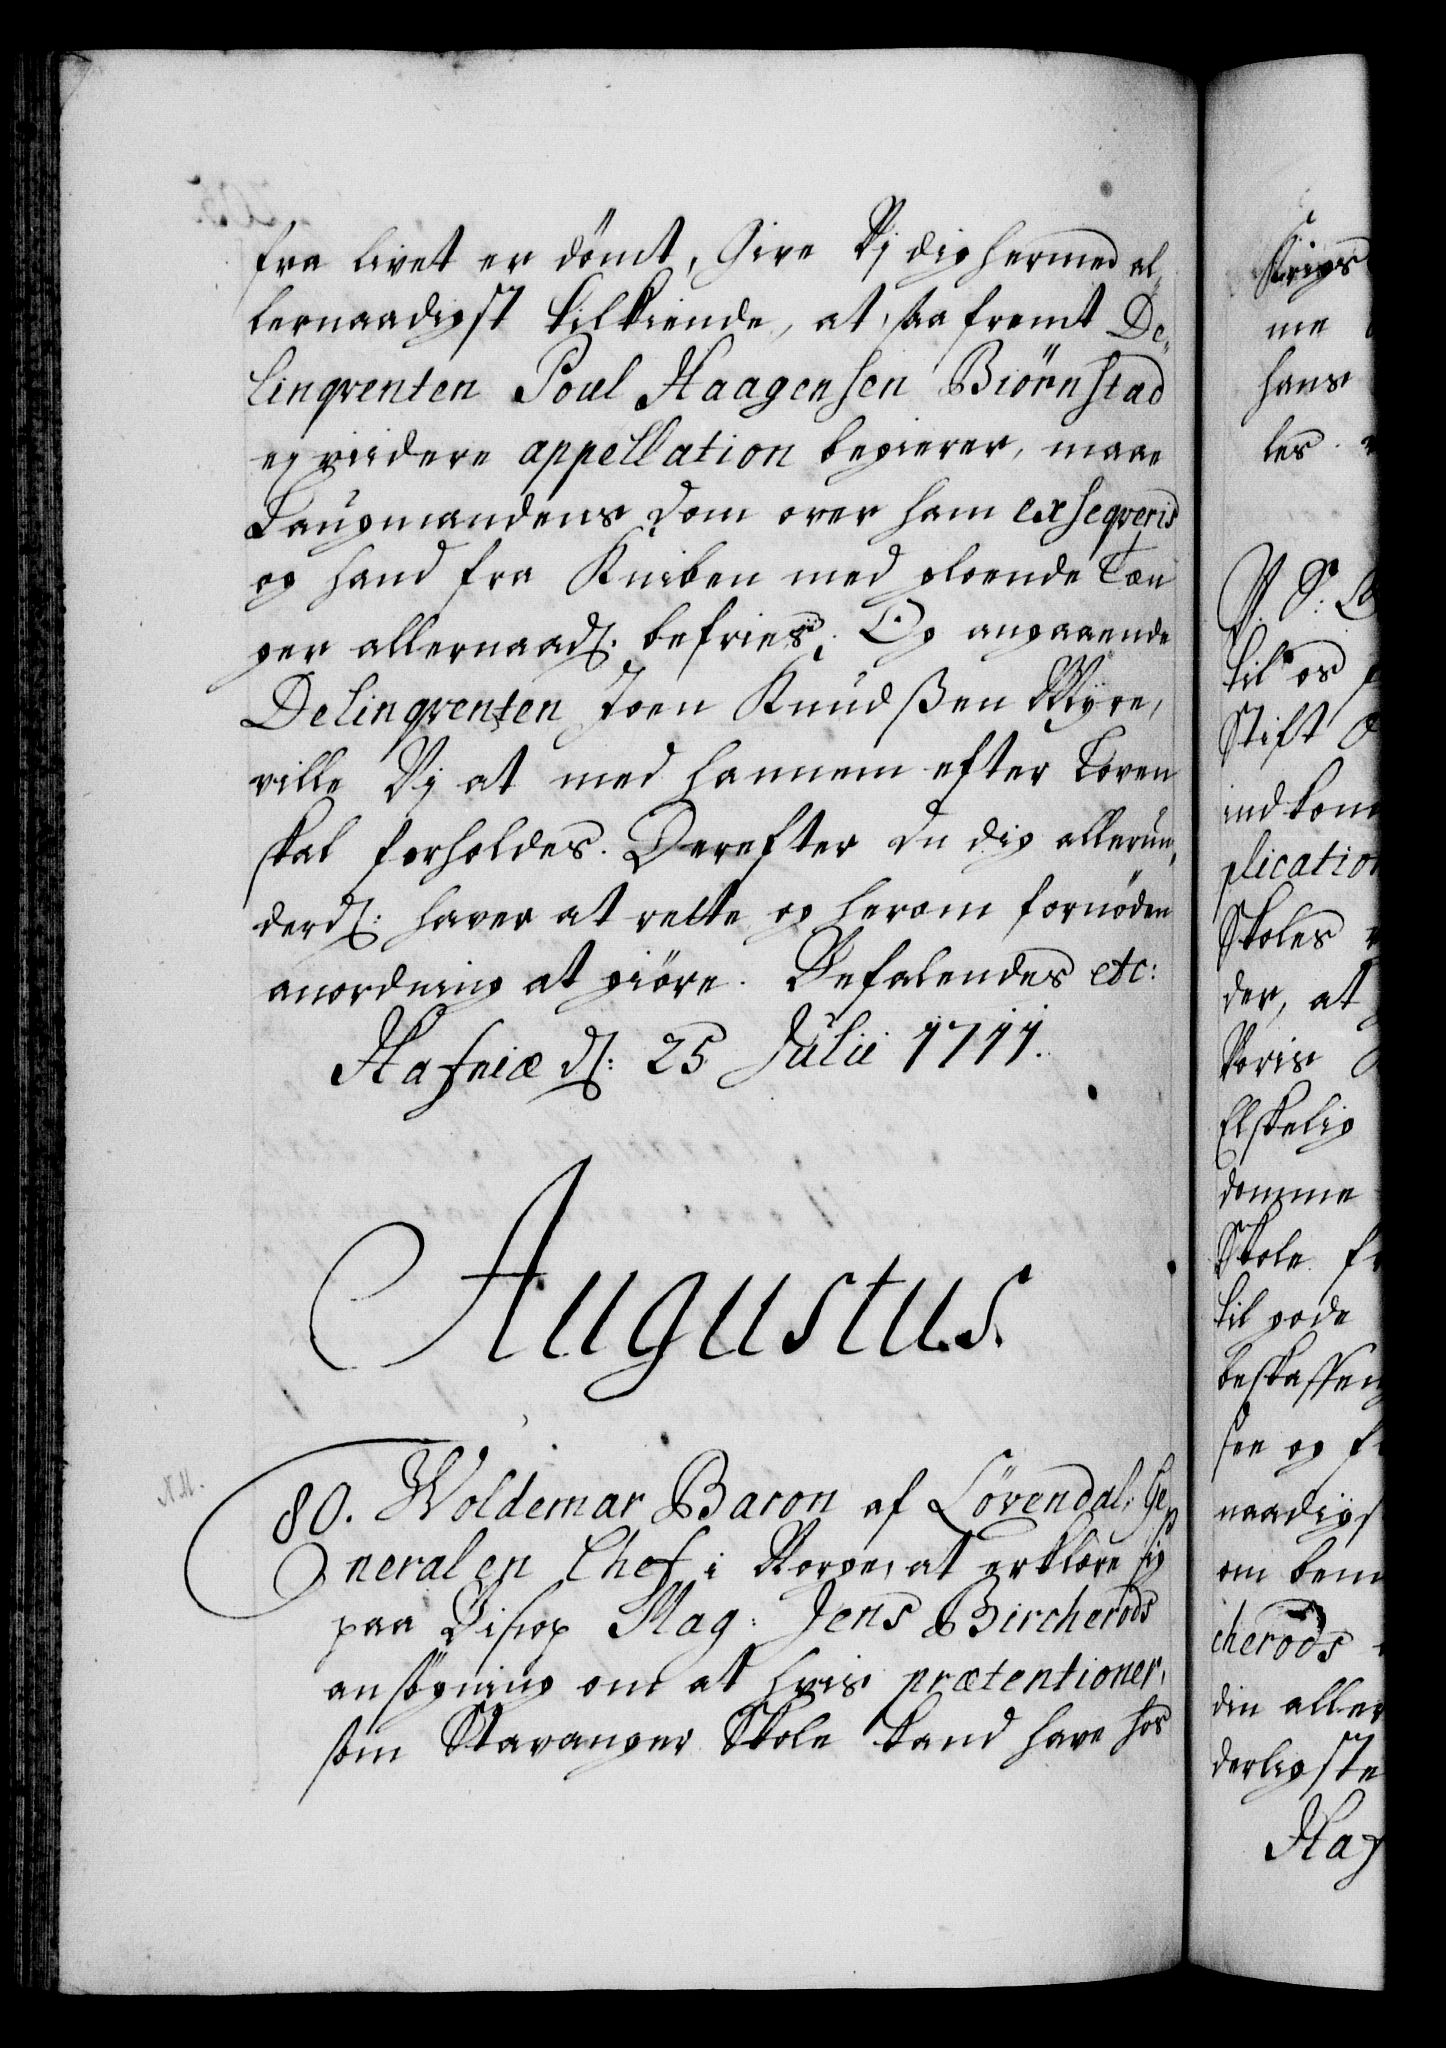 fra livet er dömt, Give Vj dig hermed al,,
lernaadigst tilkiende, at, saa fremt De,,
linqventen Poul Haagensen Biörnstad
ej viidere appellation begierer, maae
Laugmandens Dom over ham exseqveris
og hand fra Kniben med gloende Tæn
ger allernaadst: befries. Og angaaende
Delinqventen Joen Knudßen Myre,
ville Vj at med hannem efter Loven
skal forholdes. Derefter du dig allerun,,
derdst: haver at rette og herom fornöden
anordning at giöre. Befalendes etc:
Hafniæ dt: 25 Julii 1711.
Augustus.
80. Woldemar Baron af Lövendal, Ge,,
neral en Chef i Norge, at erklære sig
paa Bisop Mag: Jens Bircherods
ansögning om at hvis prætentioner,
som Stavanger Skole kand have hos
Krigs
me
hans
les.
til os
Stift
indkom
plication
Skoles
der, at
Noris
Elskelig
domme
Skole
til gode
beskaffen
see og
naadigs
om bem
cherods
din aller
derligste
Haf